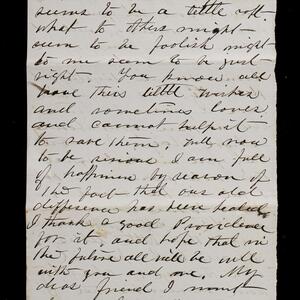 seems to be a little soft
what to others might
seem to be foolish might
to me seem to be just
right. You know all
have their little
and sometimes loves
and cannot help it
to save them, but now
to be serious I am full
of happiness by reason of
the fact that our old
difference has been healed
I thank a good Providence
for it, and hope that in
the future all will be well
with you and me. My
dear friend I must